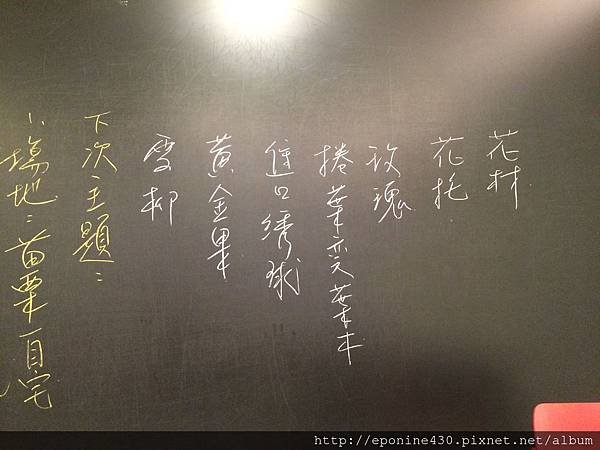 花材
花托
玫瑰
捲葉變葉木
進口繡球
黃金果
雪柳
下次主題:
1、場地:苗栗自宅
http://eponine430.pixnet.net/album